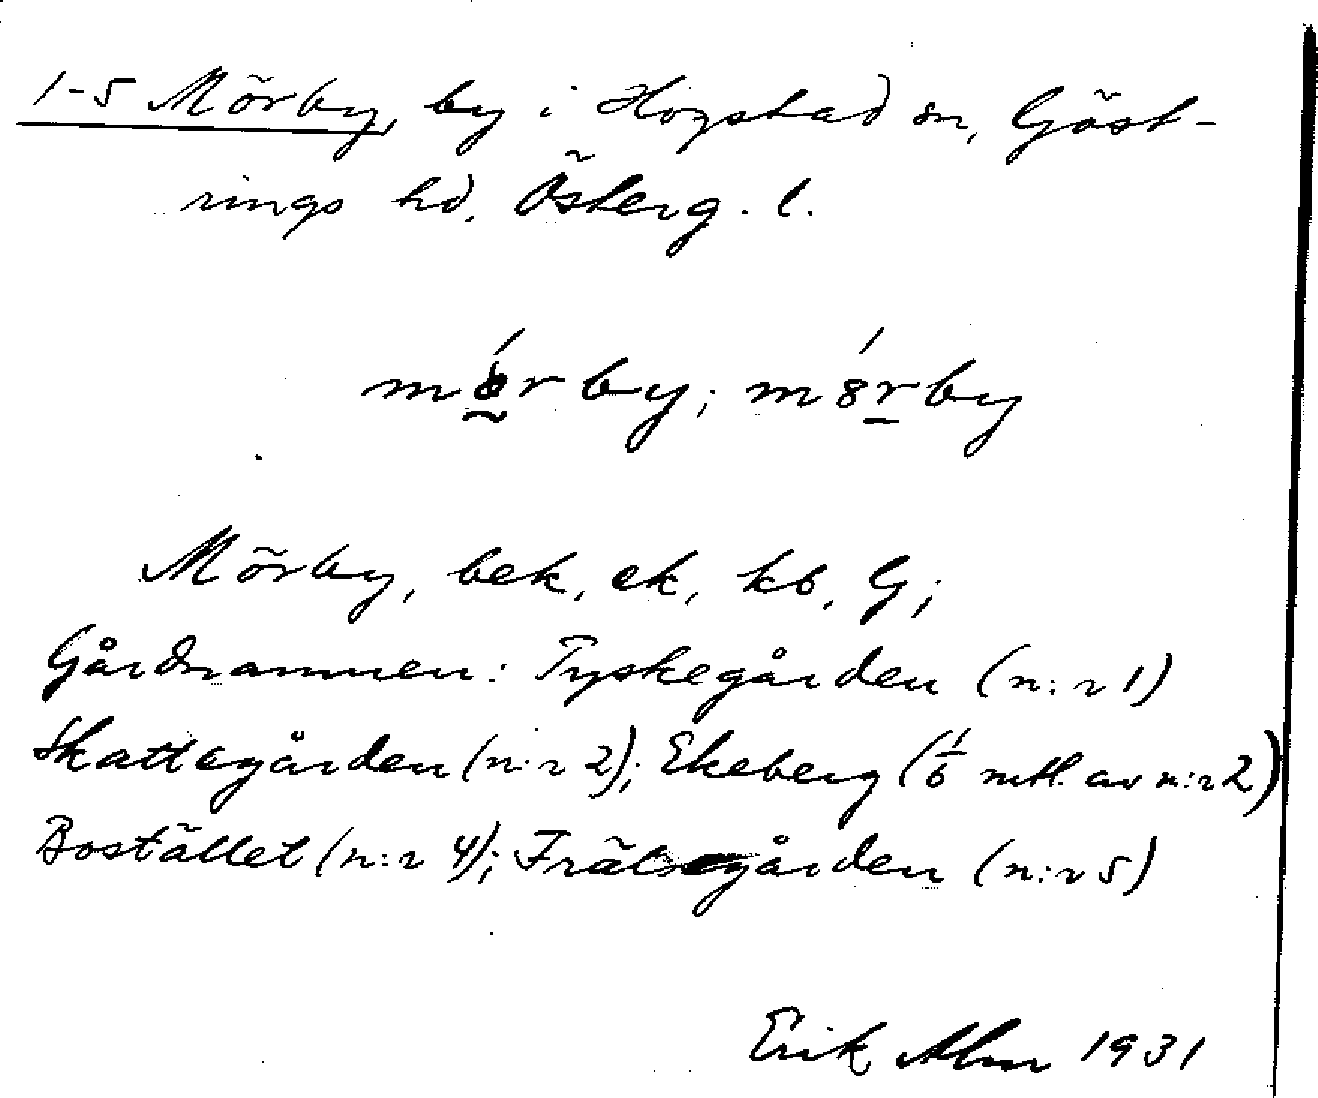 1-5 Mörby, by i Hogstad sn, Göst-
rings hd. Österg. l.
mörby; m8rby
Mörby, bek, ek, kb, G;
Gårdnamnen: Tyskegården (n:r 1)
Skattegården (n:r 2); Ekeberg (1/6 mtl. av n:r 2)
Bostället (n:r 4); Frälsegården (n:r 5)
Erik Alm 1931